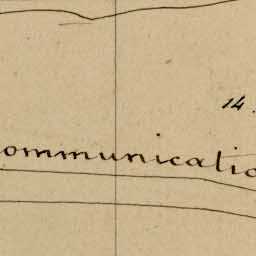 14.
ommunicatio